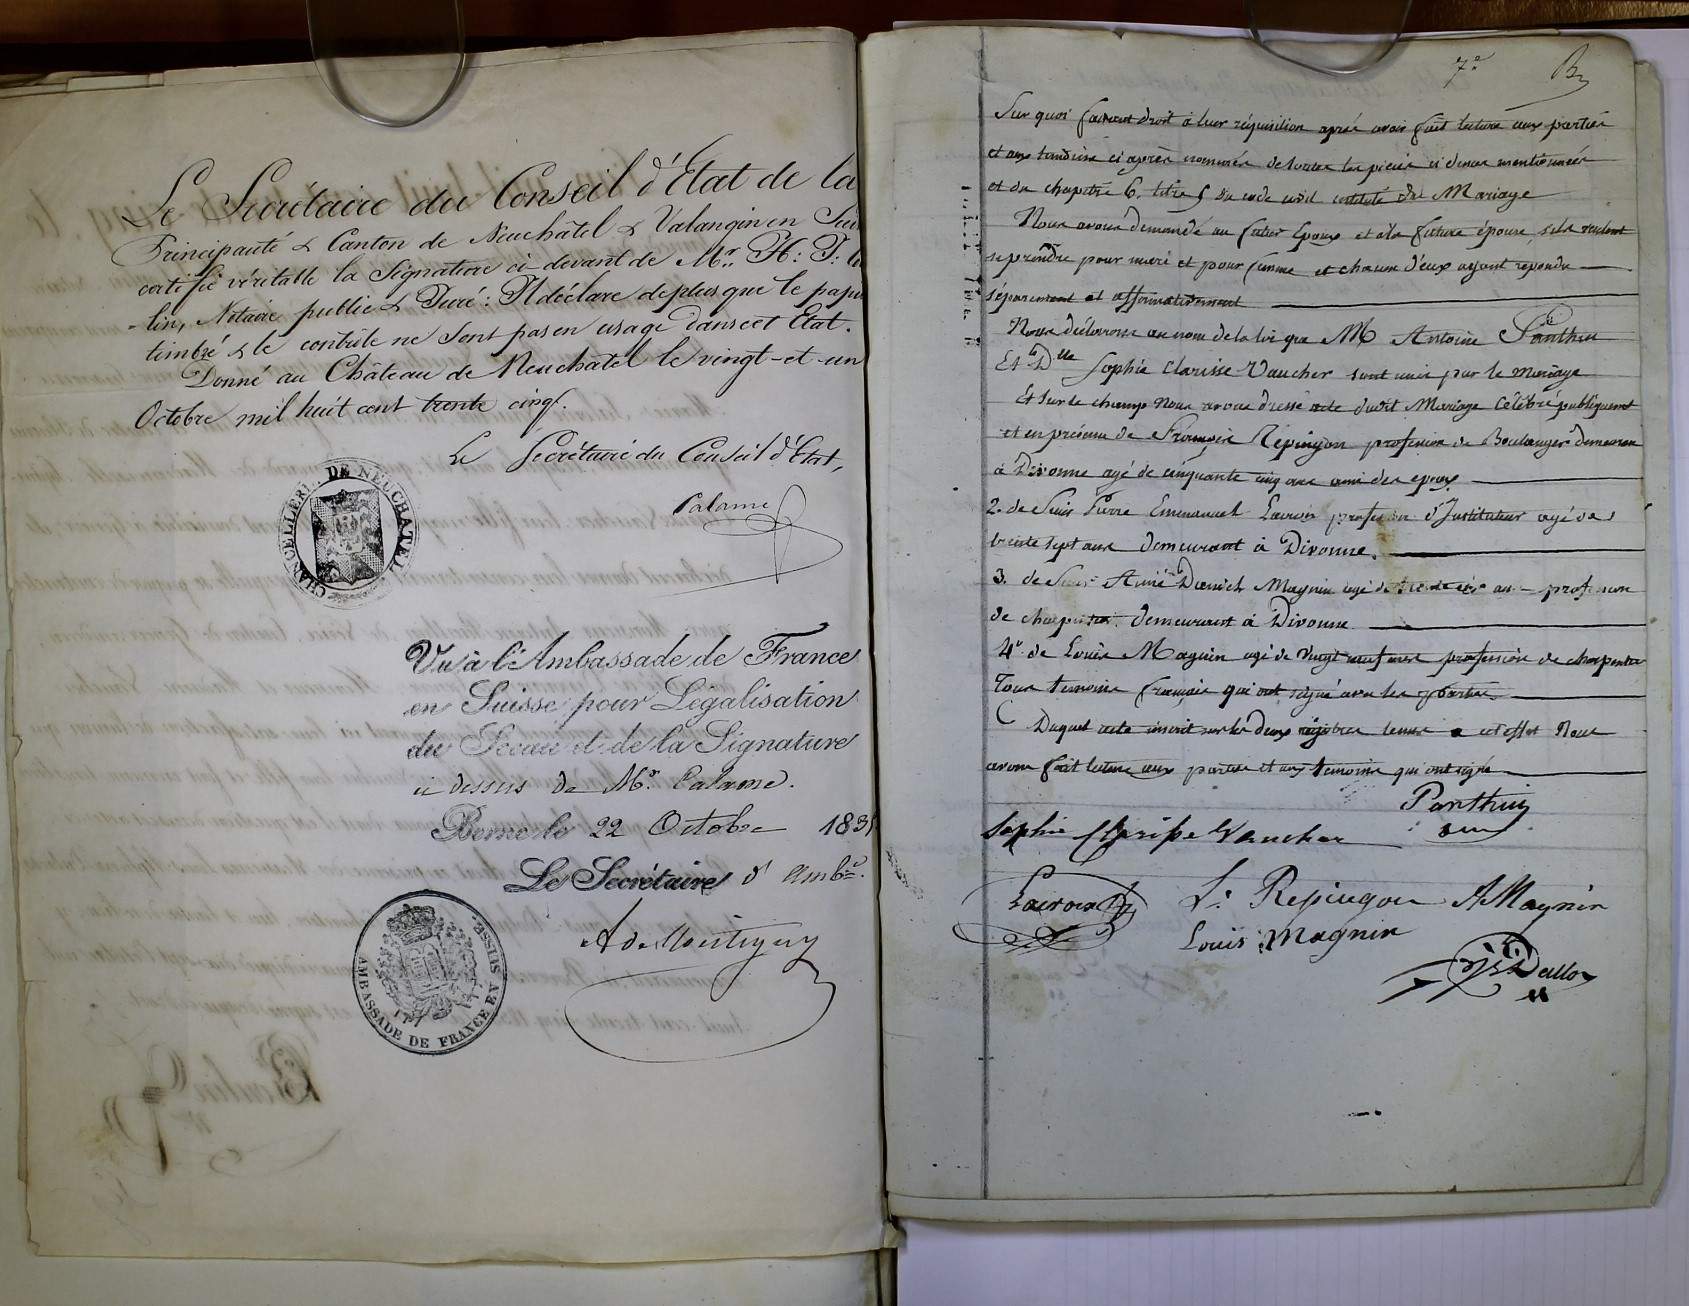 Le Secrétaire du Conseil d'État de la
Principauté & Canton de Neuchâtel & Valangin en Sui
certifie véritable la Signature ci-devant de Mr. H: F:
-lin, Notaire public & Juré: Il déclare de plus que le papi
timbré & le contrôle ne sont pas en usage dans cet État.
Donné au Château de Neuchatel le vingt-et-un
Octobre mil huit cent trente cinq.
Le Secrétaire du Conseil d'État,
Calame
CHANCELLERIE DE NEUCHATEL
Vu à l'Ambassade de France
en Suisse pour Légalisation
du Sceau et de la Signature
ci dessus de Mr. Calame.
Berne le 22 Octobre 183
Le Secrétaire d'Ambe.
A de Montigny
AMBASSADE DE FRANCE EN SUISSE
7e
Sur quoi faisant droit à leur réquisition après avoir fait lecture aux parties
et aux temoins ci après nommés de toutes les pièces ci dessus mentionnées
et du chapitre 6. titre 5 du code civil intitulé du Mariage
Nous avons demandé au futur Epoux et à la future épouse, s'ils veulent
se prendre pour mari et pour femme et chacun d'eux ayant repondu
séparement et affirmativement
Nous déclarons au nom de la loi que M Antoine Panthin
Et Dlle Sophie Clarisse Vaucher sont unis par le Mariage
Et sur le champ Nous avons dressé acte dudit Mariage Célébré publiquement
et en présence de François Répingon profession de Boulanger demeurant
à Divonne agé de cinquante cinq ans ami des epoux
2. de Sieur Pierre Emmanuel Lacroix profession d'Instituteur agé de
trente sept ans demeurant à Divonne.
3. de Sieur Aimé Magnin agé de ans profession
de charpentier demeurant à Divonne
4e de Louis Magnin agé de vingt neuf ans profession de charpentier
Tous temoins français qui ont signé avec les parties.
Duquel acte inscrit sur les deux régistres tenus a cet effet Nous
avons fait lecture aux parties et aux temoins qui ont signé
Panthin
Sophie Clarisse Vaucher
Lacroix fs Repingon AMagnin
Louis Magnin